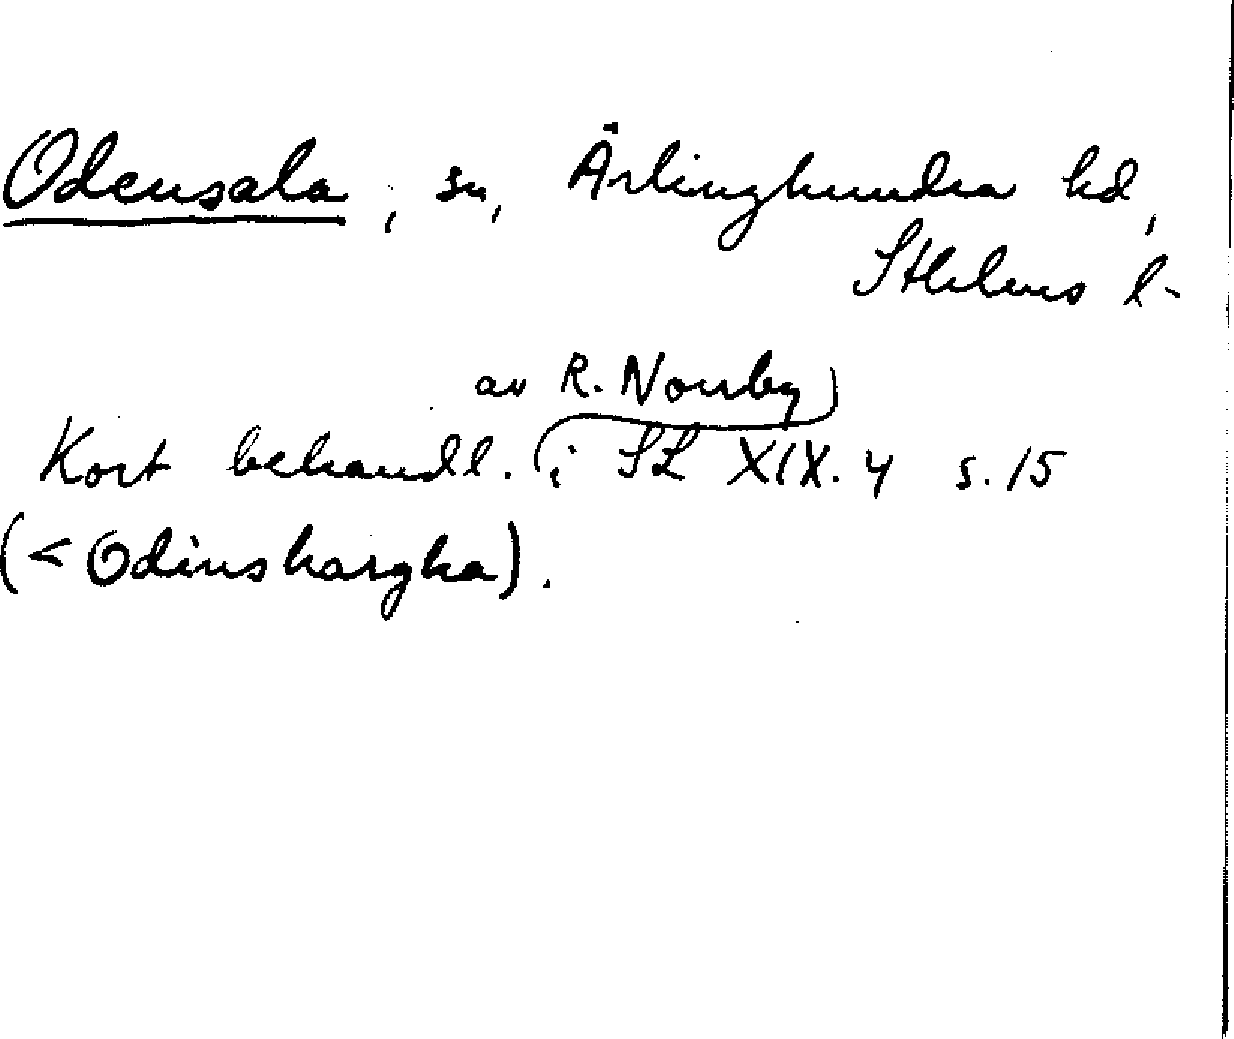 Odensala, sn, Ärlinghundra hd,
Sthlms l.
av R. Norrby
Kort behandl. i SL XIX.4 s. 15
(< Odinshargha).